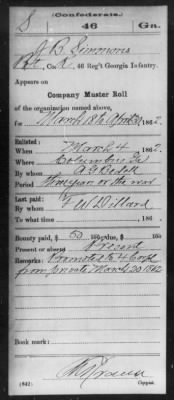 (Confederate.)
S 46 Ga.
J B Simmons
Pvt, Co. K, 46 Reg't Georgia Infantry.
Appears on
Company Muster Roll
of the organization named above,
for March 18 to Apr 30, 1862.
Enlisted:
When March 4, 1862.
Where Columbus Ga
By whom A. G. Bedell
Period three years or the war
Last paid:
By whom F W Dillard
To what time , 186 .
Bounty paid, $ 50 100; due, $ 100
Present or absent Present
Remarks: Promoted to 4 Corpl
from private March 20 1862
Book mark:
(642) Copyist.